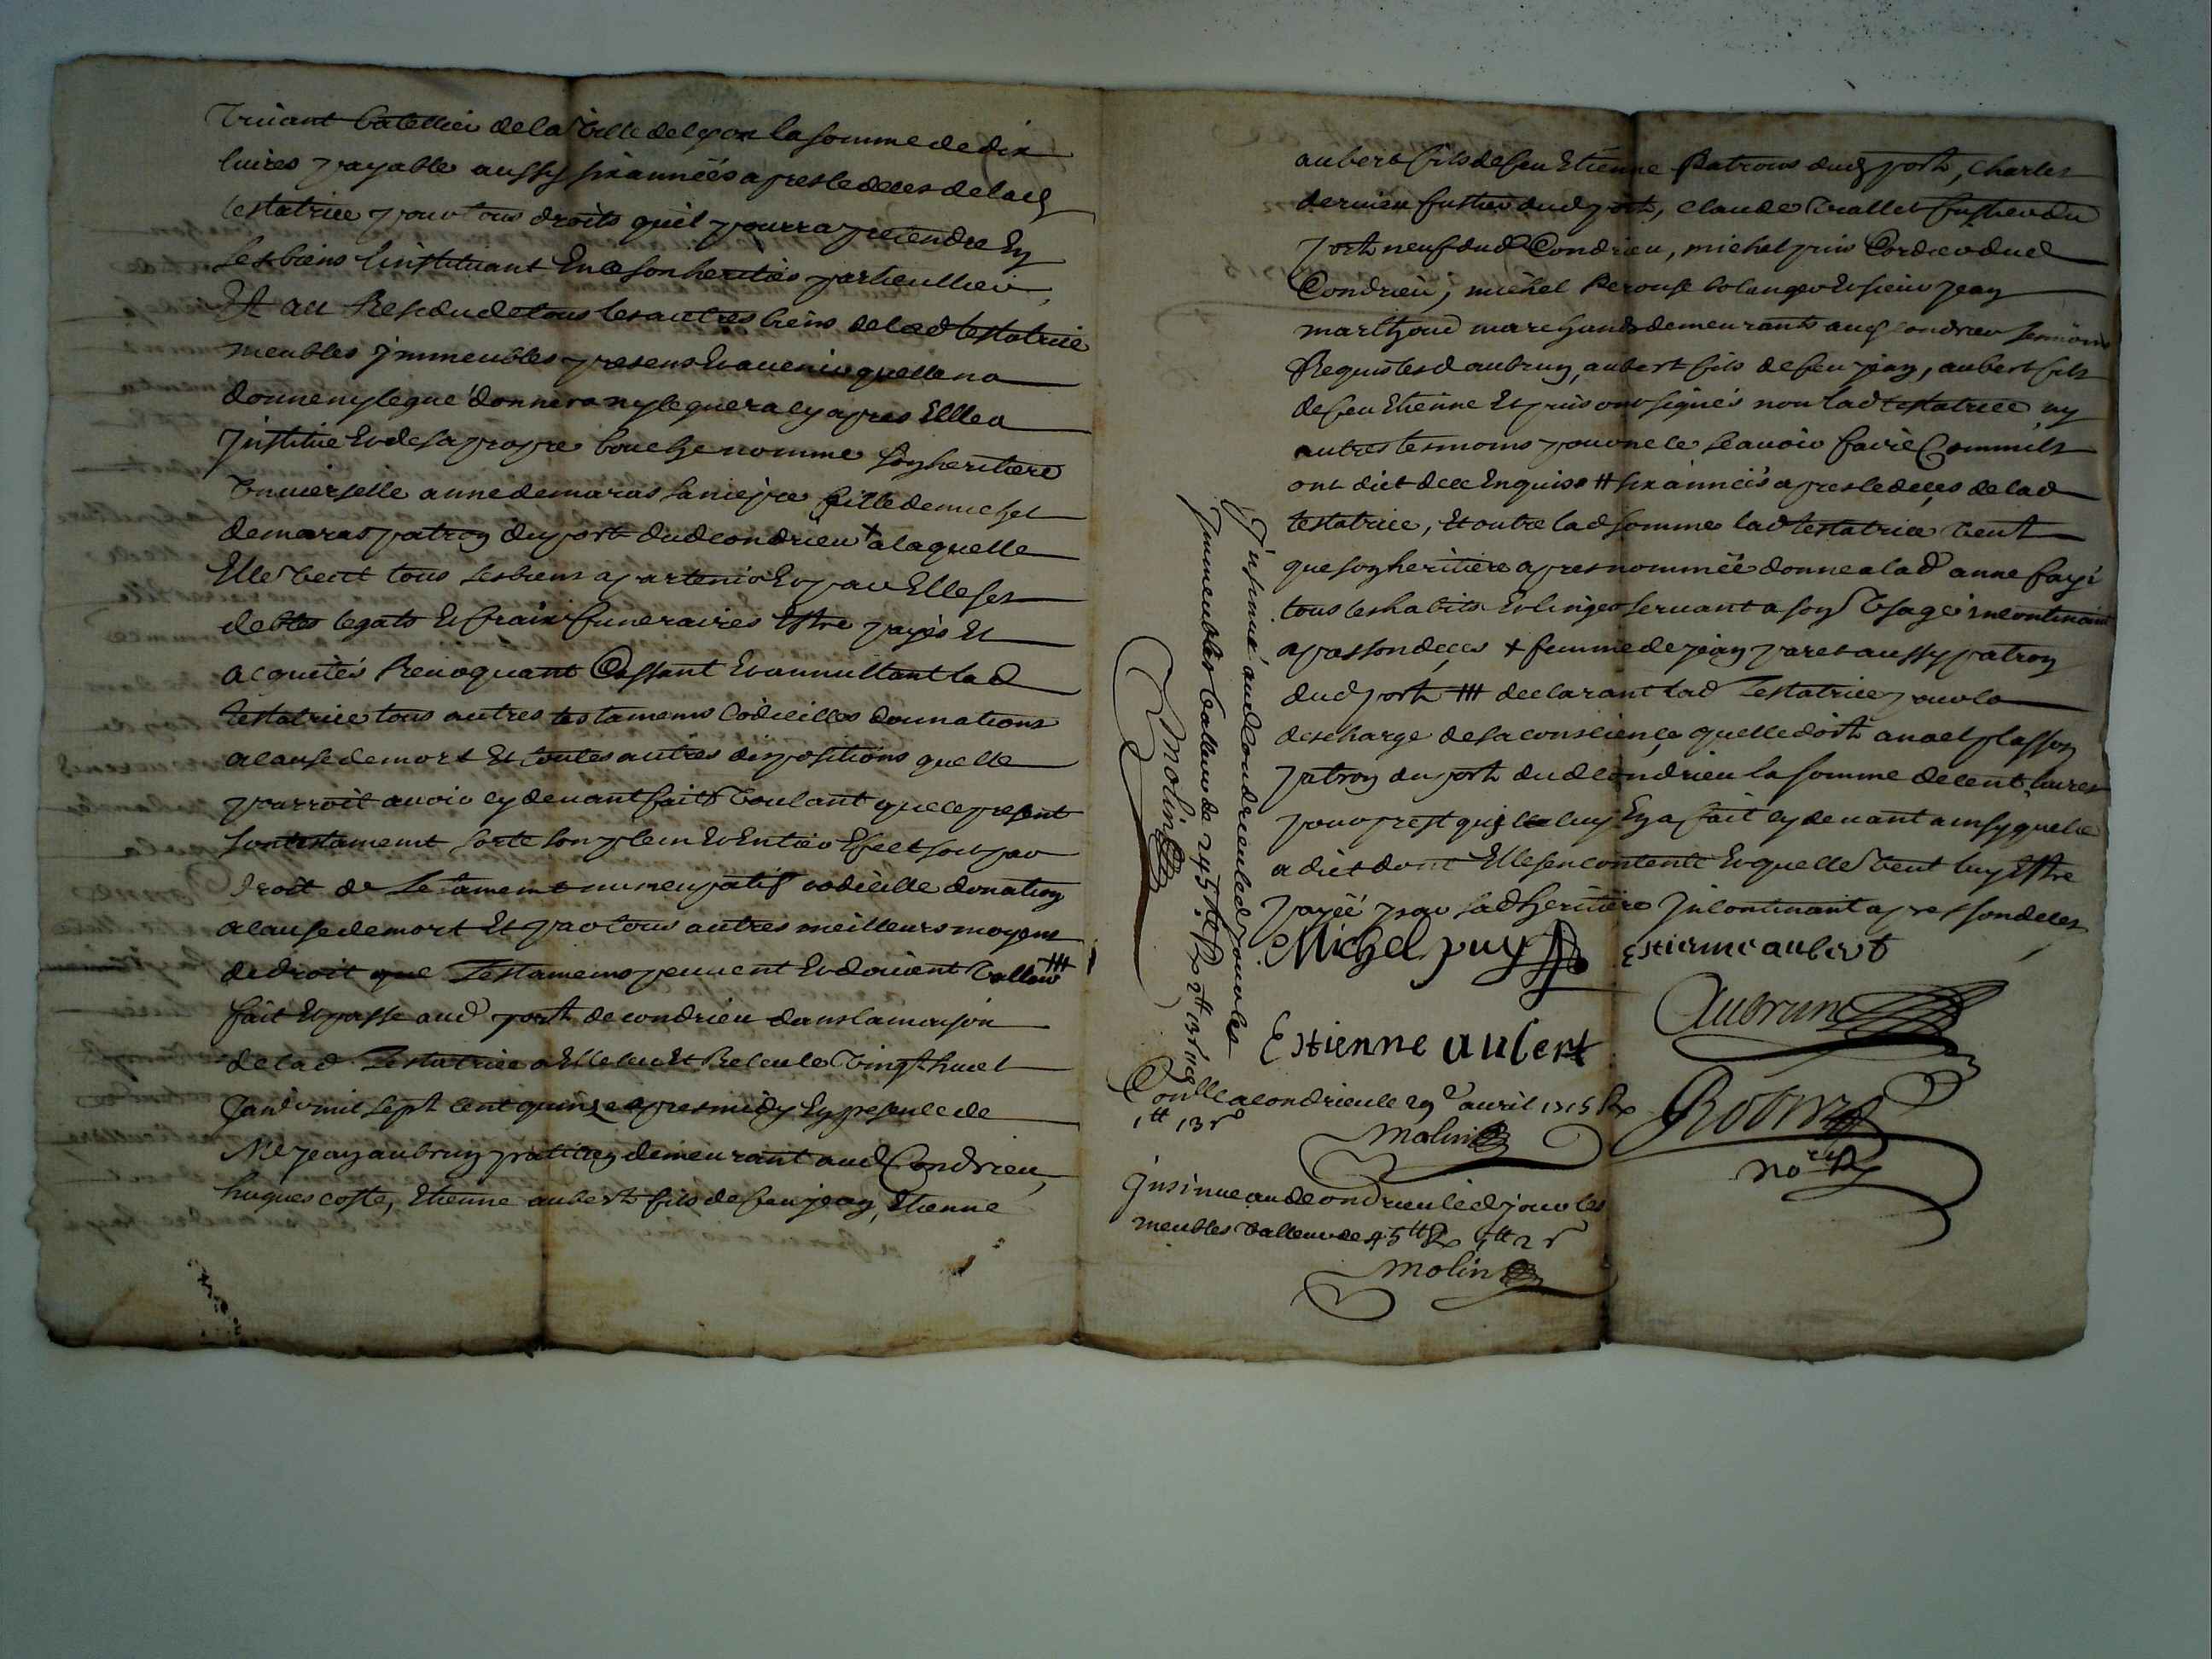 vivant batellier de la ville de lyon la somme de dix
livres payable aussy six années apres le deces de lad
testatrice pour tous droits quil pourra pretendre En
ses biens l'instituant En ce son heritier particullier
Et au Residu de tous les autres biens de lad testatrice
meubles Jmmeubles presens Et avenir quelle na
donne ny legué donnera ny leguera cy apres Elle a
Jnstitue Et de sa propre bouche nomme son heritiere
universelle anne demaras sa niepce fille de michel
demaras patron du port dud condrieu + a laquelle
Elle veut tous ses biens apartenir Et par Elle ses
debtes legats Et fraix funeraires Estre payés Et
acquités Revoquant Cassant Et annullant lad
testatrice tous autres testamens Codicilles donnations
a cause de mort Et toutes autres dispositions quelle
pourroit avoir cy devant fait voulant que ce present
son testament sorte son plein Et Entier Efect soit par
droit de Testament nuncupatif codicille donation
a cause de mort Et par tous autres meilleurs moyens
de droit que Testamens peuvent Et doivent valloir ///
fait Et passe aud port de condrieu dans la maison
de lad Testatrice a Elle leu Et Releu le vingt huict
Janv mil sept cent quinze apres midy En presence de
Me jean aubrun praticien demeurant aud Condrieu,
hugues coste, Etienne aubert fils de feu jean, Etienne
aubert fils de feu Etienne Patrons dud port, Charles
dervieu fustier dud port, claude viallet fustier du
port neuf dud Condrieu, michel puis Cordier dud
Condrieu, michel Perouse bolanger Et sieur jean
marthoud marchands demeurants aud condrieu temoins
Requis led aubrun, aubert fils de feu jean, aubert fils
de feu Etienne Et puis ont signés non lad testatrice ny
autres tesmoins pour ne le scavoir faire Comm'ils
ont dict de ce Enquis # six années apres le deces de lad
testatrice, Et outre lad somme lad testatrice veut
que son heritiere apres nommée donne a lad anne fayi
tous les habits Et linges servant a son Usage incontinant
apres son deces + femme de jean paret aussy patron
dud port /// declarant lad Testatrice pour la
descharge de sa conscience quelle doit a plasson
patron du port dud condrieu la somme de cent livres
pour prest quil luy En a fait cy devant ainsy quelle
a dict dont Elle sen contente Et quelle veut luy Estre
payéé par lad heritiere Jncontinant apres son deces
Michel puy
Estienne aubert
Aubrun
Estienne aubert
Conlle a condrieu le 29e avril 1715 R
1tt 13s
molin
Robin
nore R
Jnsinue au de condrieu led jour les
meubles valleur de 45tt R 1tt 2s
molin
J'nsinué aud Condrieu led jour les
Jmmeubles valleur de 245tt R 2tt 13s
Molin